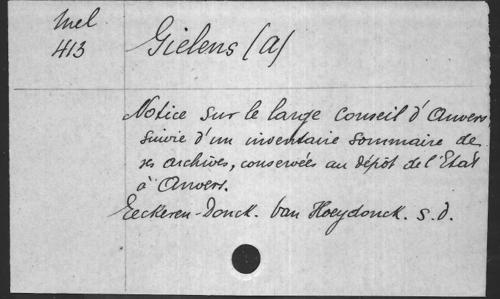 Mel
413
Gielens (A)
Notice sur le large Conseil d'Anvers
suivie d'un inventaire sommaire de
ses archives, conservées au dépôt de l'Etat
à Anvers.
Eeckeren-Donck. Van Hoeydonck. s.d.